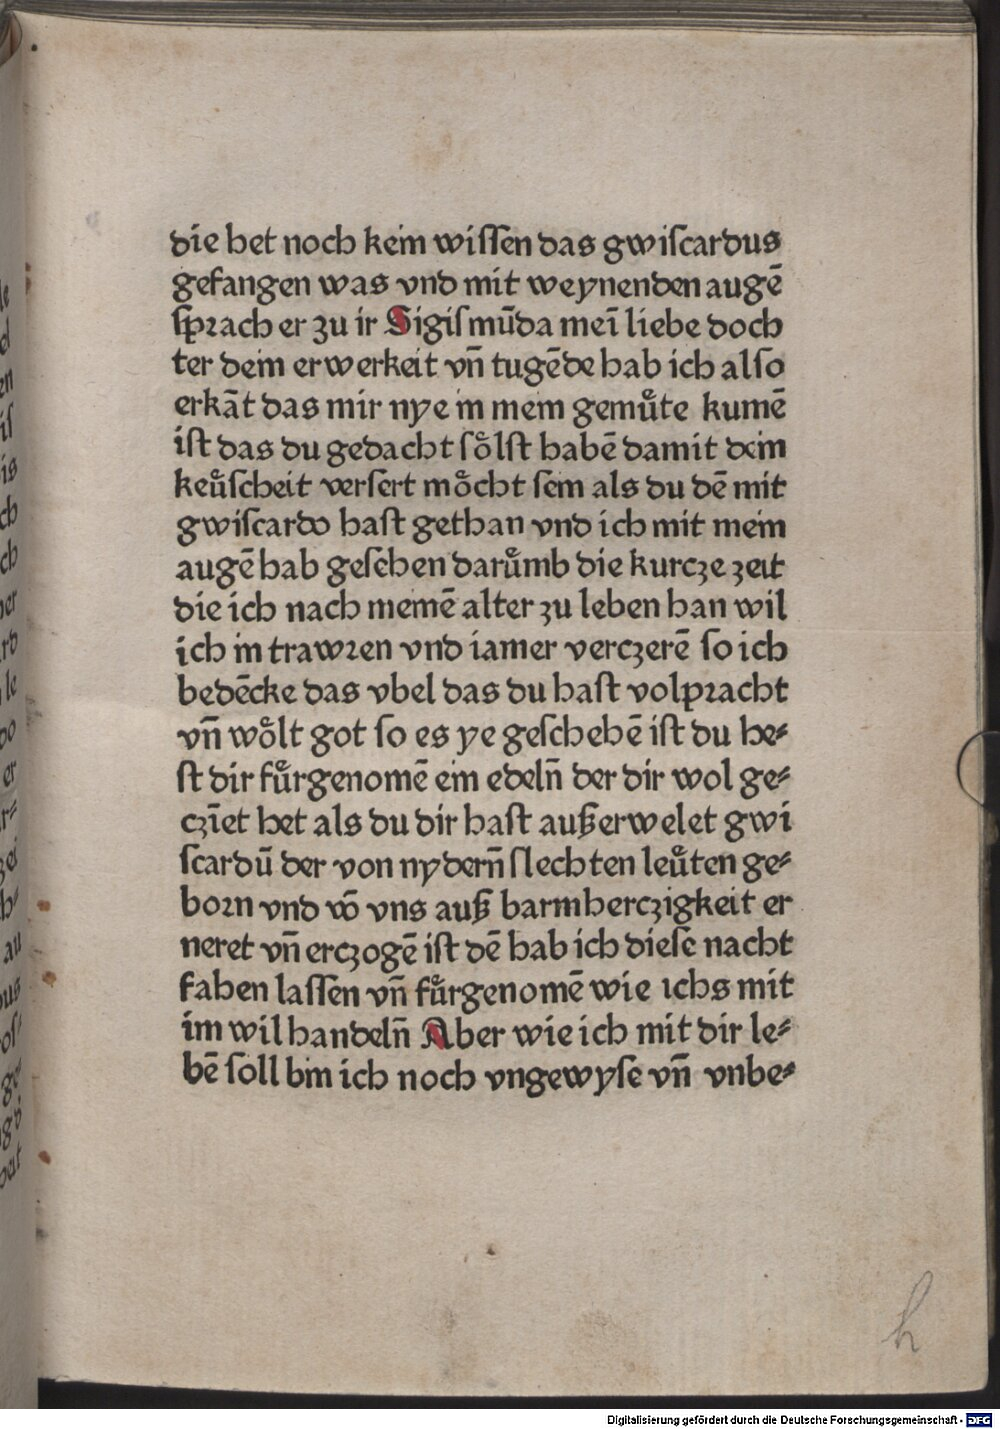 die het noch kein wissen das gwiscardus
gefangen was vnd mit weynenden augē
sprach er zu ir Sigismūda meī liebe doch
ter dein erwerkeit vñ tugēde hab ich also
erkāt das mir nye in mein gemuͤte kumē
ist das du gedacht soͤlst habē damit dein
keuͤscheit versert moͤcht sein als du dē mit
gwiscardo hast gethan vnd ich mit mein
augē hab gesehen daruͤmb die kurcze zeit
die ich nach meinē alter zu leben han wil
ich in trawren vnd iamer verczerē so ich
bedēcke das vbel das du hast volpracht
vñ woͤlt got so es ye geschehē ist du he-
st dir fuͤrgenomē ein edelñ der dir wol ge-
czīet het als du dir hast außerwelet gwi
scardū der von nydern̄ slechten leuͤten ge-
born vnd vō vns auß barmherczigkeit er
neret vñ erczogē ist dē hab ich diese nacht
fahen lassen vñ fuͤrgenomē wie ichs mit
im wil handelñ Aber wie ich mit dir le-
bē soll bin ich noch vngewyse vñ vnbe-
h
Digitalisierung gefördert durch die Deutsche Forschungsgemeinschaft - DFG